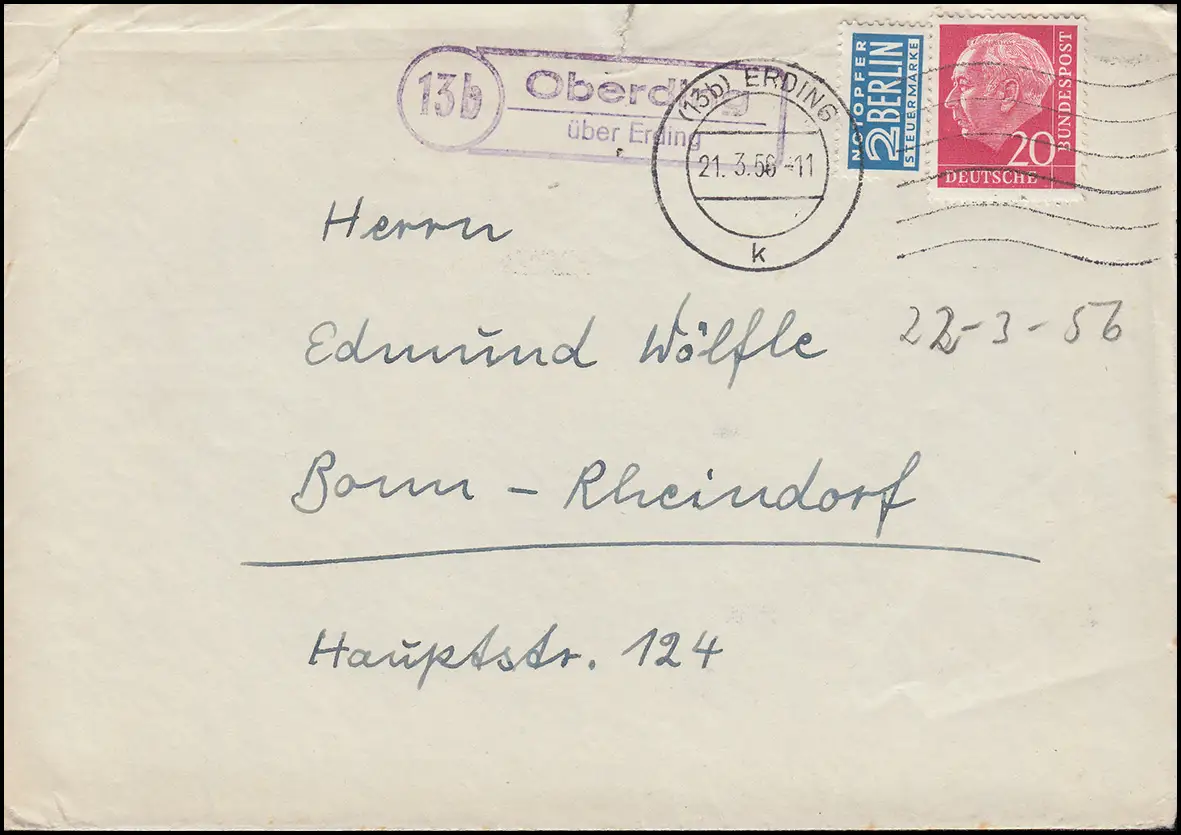 13b
Oberding
über Erding
(13b) ERDING
21. 3. 56 -11
k
NOTOPFER
2 BERLIN
STEUERMARKE
20
DEUTSCHE
BUNDESPOST
Herrn
Edmund Wölfle
22-3-56
Bonn - Rheindorf
Hauptstr. 124